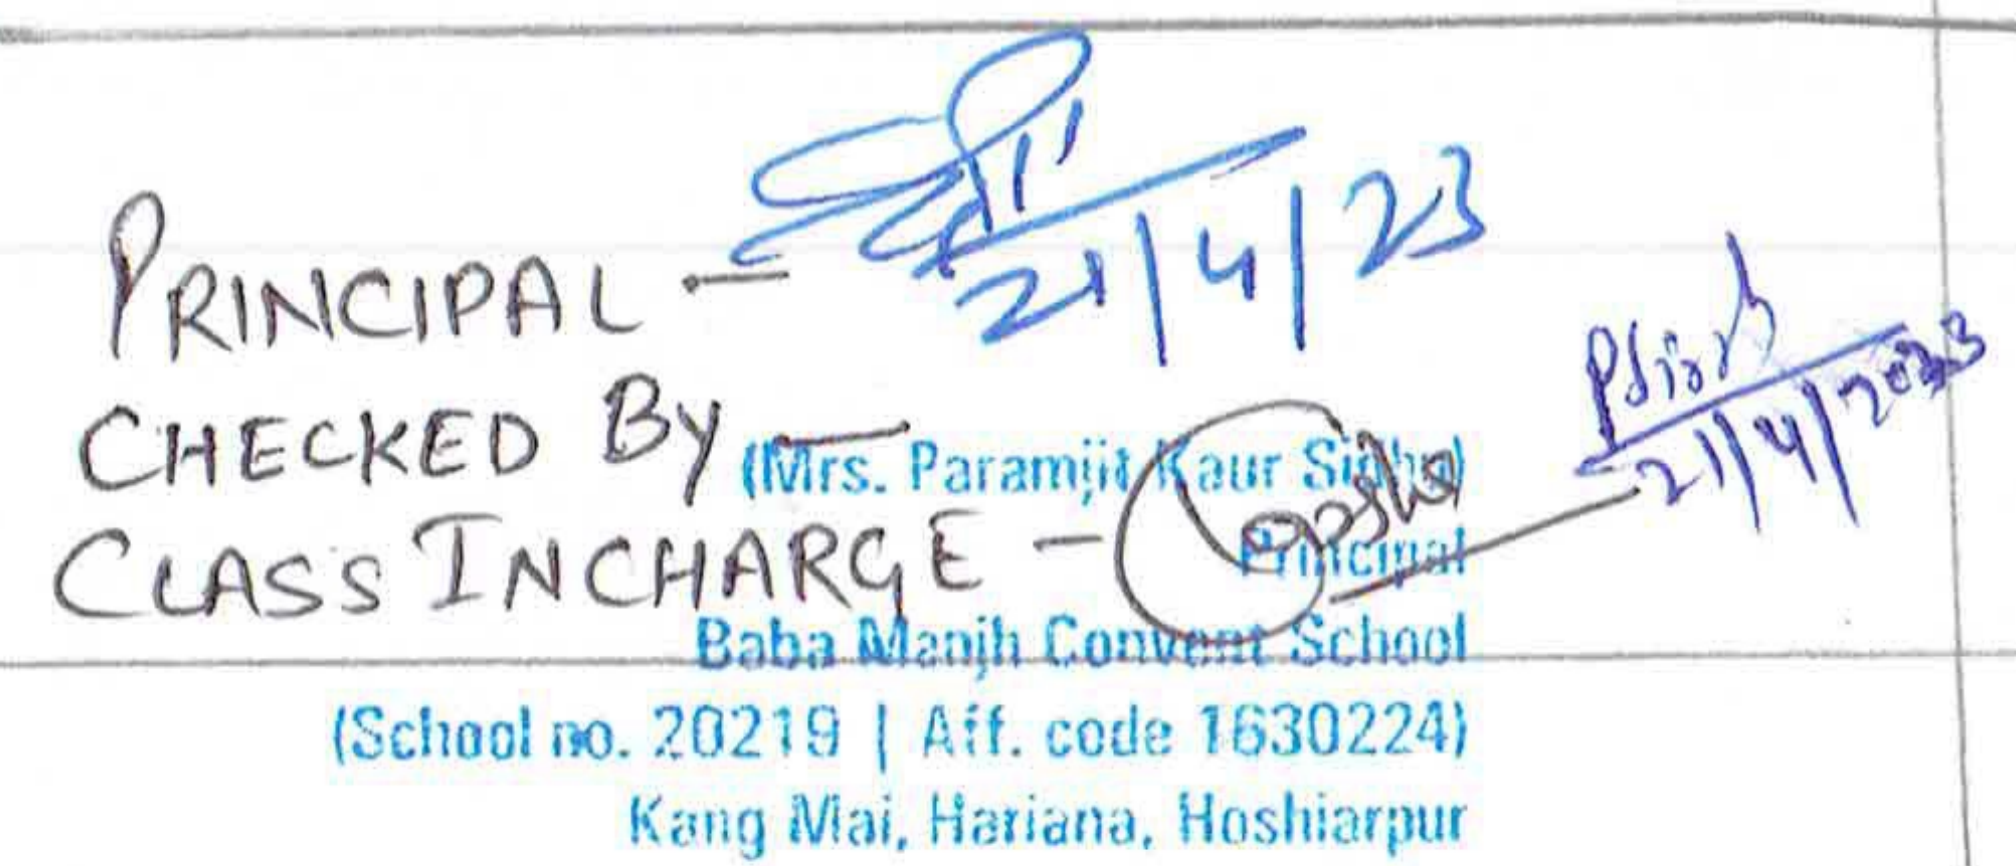 PRINCIPAL -
21/4/23
CHECKED BY -
21/4/2023
(Mrs. Paramjit Kaur Sidhu)
CLASS INCHARGE -
Principal
Baba Manjh Convent School
(School no. 20219 | Aff. code 1630224)
Kang Mai, Hariana, Hoshiarpur